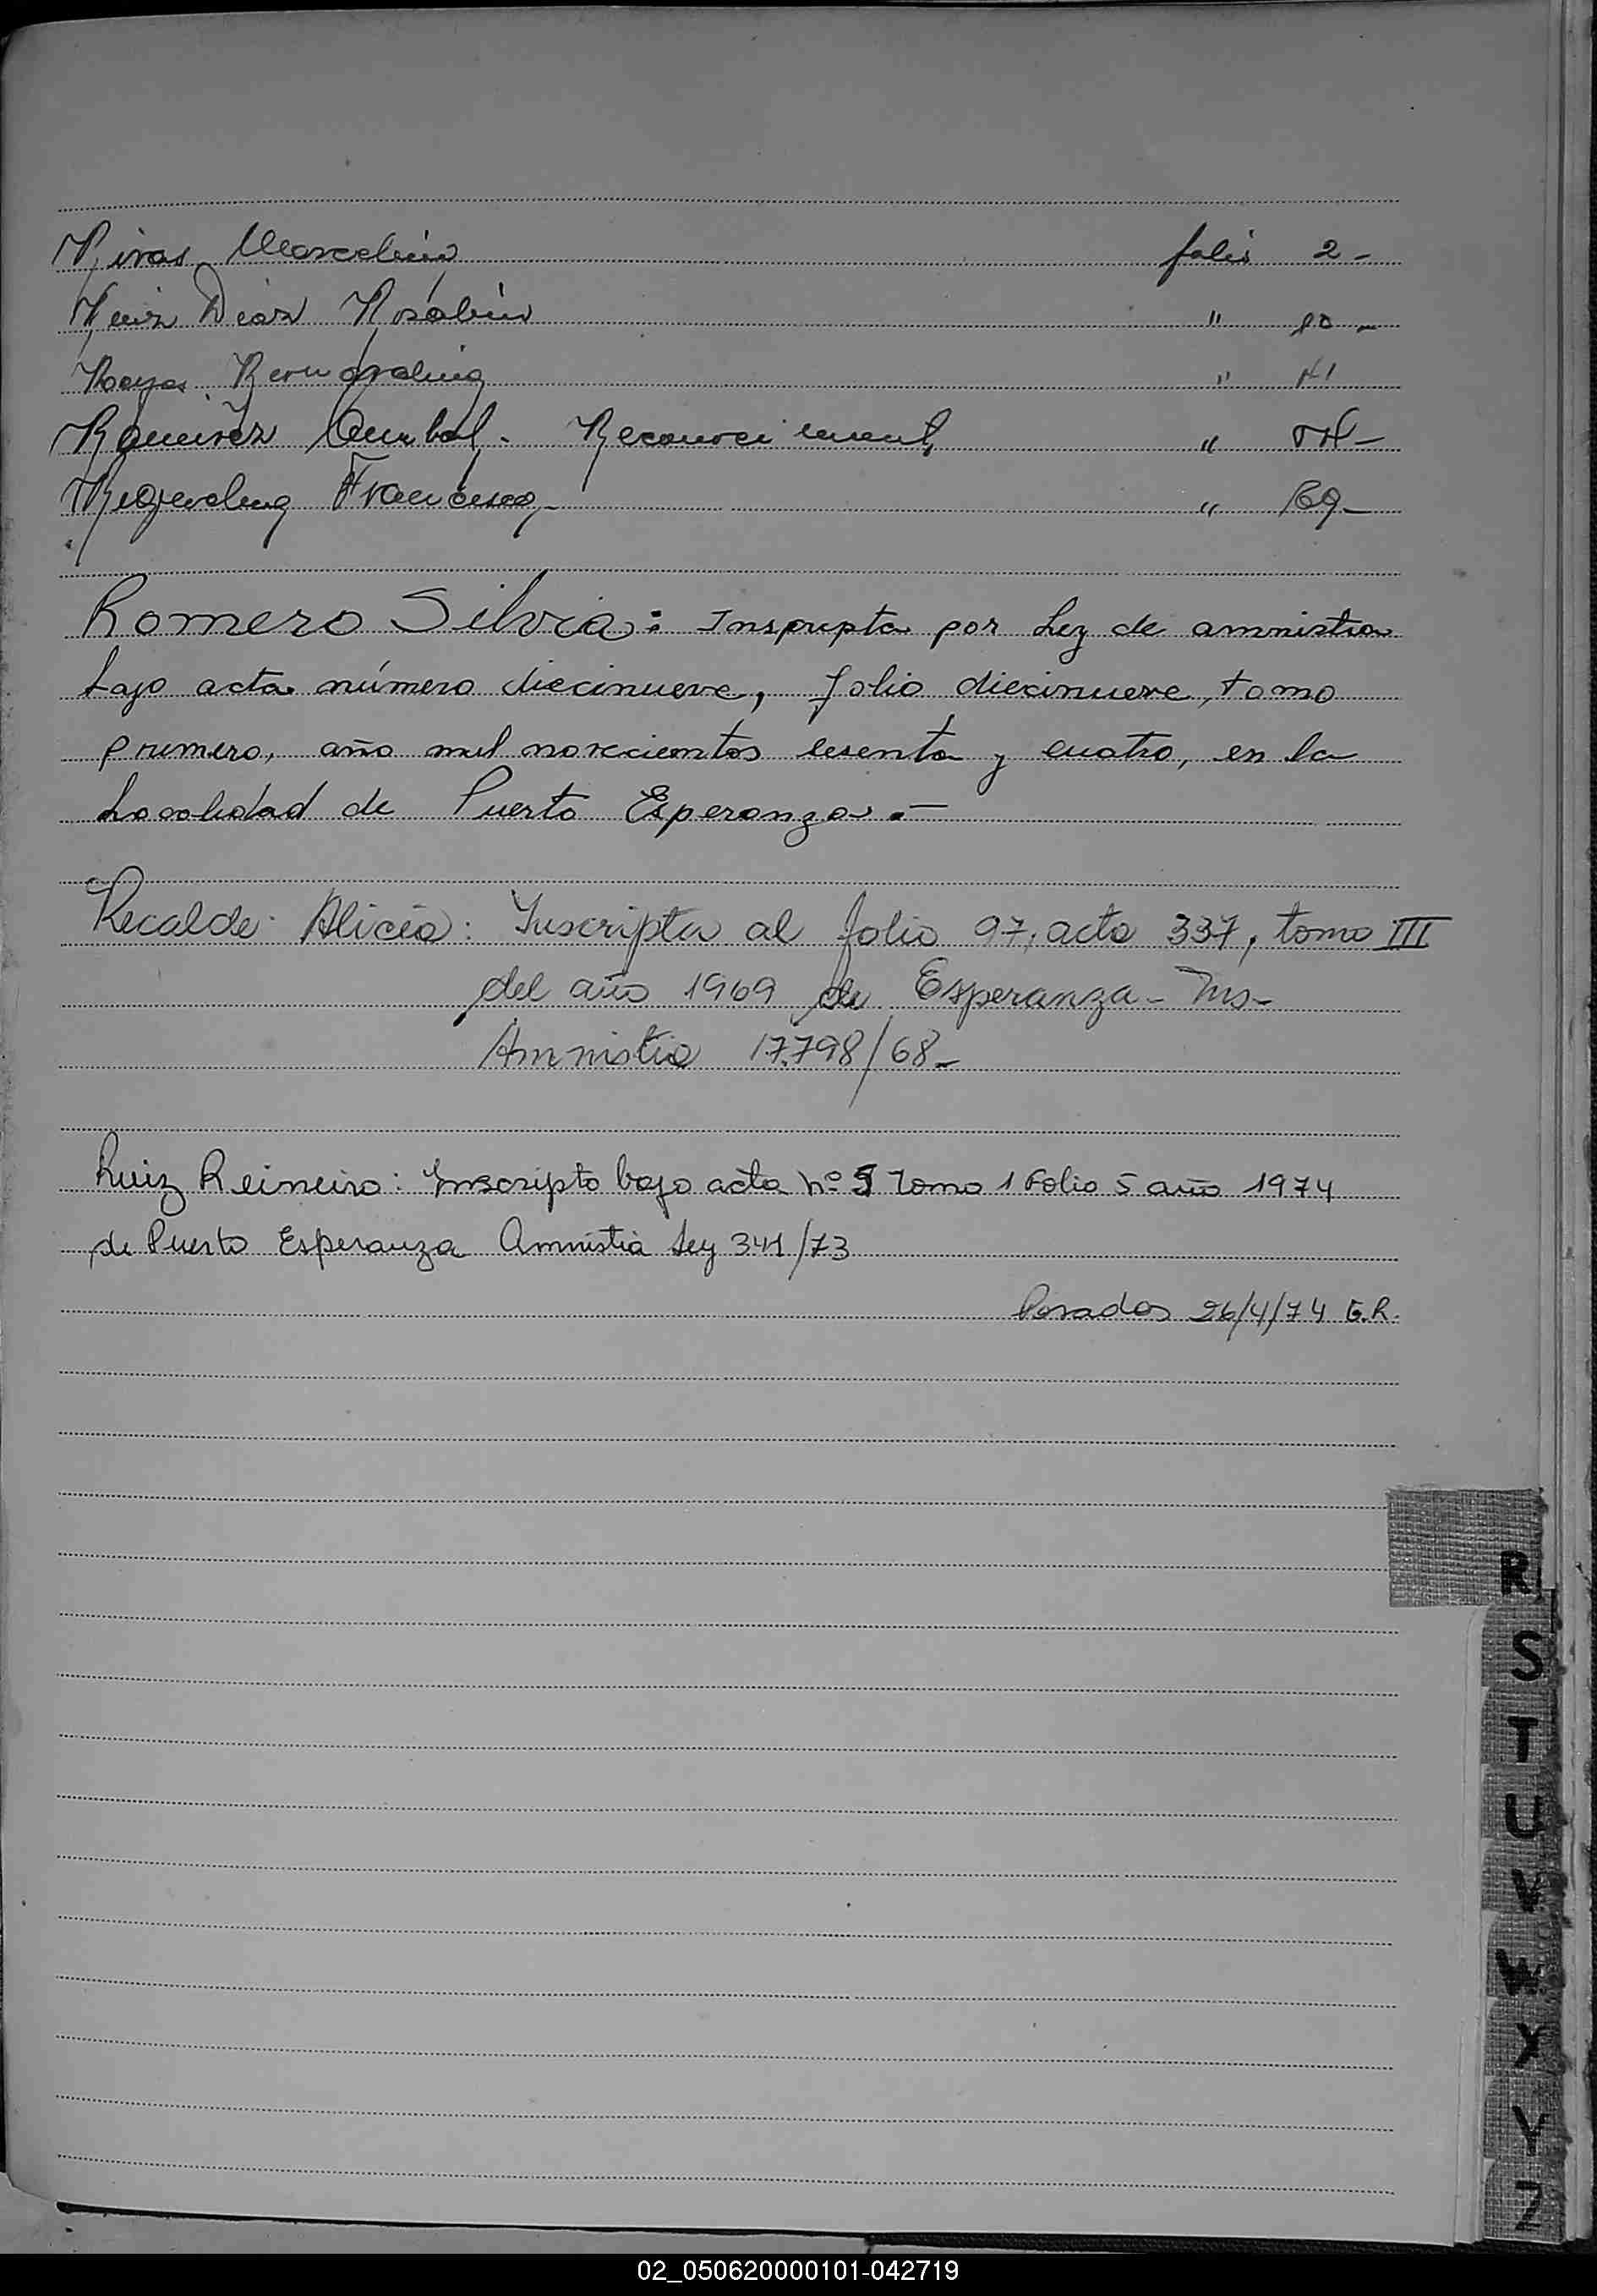 Rivas Marcelino folio 2-
Ruiz Diaz Rosalino " 10 -
Rojas Bernardina " 41
Ramirez Reconocimiento "
Francisco "  69-
Romero Silvia: Inscripta por Ley de amnistia
bajo acta número diecinueve, folio diecinueve, tomo
primero, año mil novecientos sesenta y cuatro, en la
Localidad de Puerto Esperanza.-
Recalde Alicia: Inscripta al folio 97, acta 337, tomo III
del año 1969 de Esperanza- Ms-
Amnistia 17.798/68-
Ruiz Reineiro: Inscripto bajo acta nº 5 Tomo 1 Folio 5 año 1974
de Puerto Esperanza Amnistia Ley 341/73
Posadas 26/4/74 G.R.
R
S
T
U
V
W
X
Y
Z
02_050620000101-042719